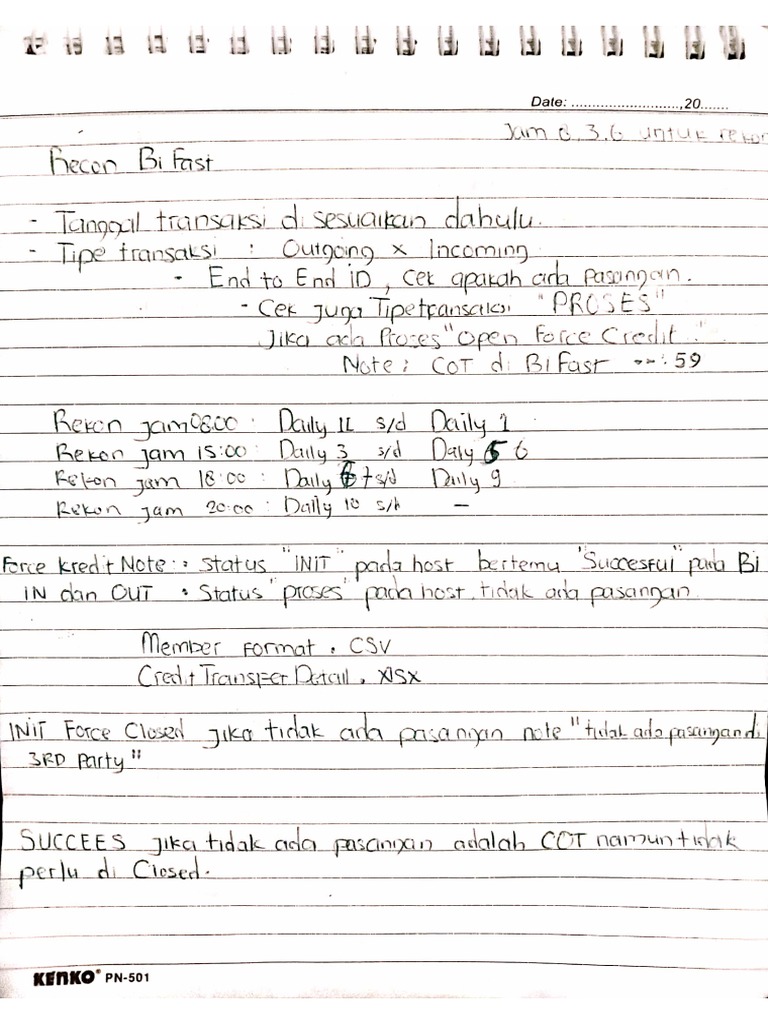 Date: ..........................,20.......
Jam 8.3.6 untuk rekon
Recon Bi Fast
- Tanggal transaksi di sesuaikan dahulu.
- Tipe transaksi : Outgoing x Incoming
- End to End iD , cek apakah ada pasangan.
- Cek juga Tipe transaksi "PROSES"
Jika ada Proses "Open Force Credit."
Note : COT di BI Fast --:59
Rekon jam 08.00 : Daily 11 s/d Daily 1
Rekon jam 15:00 : Daily 3 s/d Daly 6
Rekon jam 18:00 : Daily 7 s/d Daily 9
Rekon jam 20:00 : Daily 10 s/d -
Force kredit Note : : status "INIT" pada host bertemu "Succesful" pada Bi
IN dan OUT : Status "proses" pada host tidak ada pasangan
Member Format . CSV
Credit Transfer Detail . XlSX
INIT Force Closed jika tidak ada pasangan note "tidak ada pasangan di
3RD Party"
SUCCEES jika tidak ada pasangan adalah COT namun tidak
perlu di Closed.
KENKO PN-501